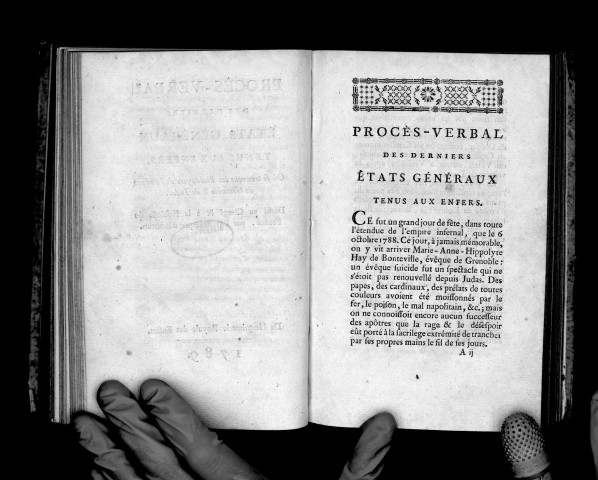 PROCÈS-VERBAL
DES DERNIERS
ÊTATS GÉNÉRAUX
TENUS AUX ENFERS.
CE fut un grand jour de fête, dans toute
l'étendue de l'empire infernal, que le 6
octobre 1788. Ce jour, à jamais mémorable,
on y vit arriver Marie-Anne-Hippolyte
Hay de Bonteville, évêque de Grenoble:
un évêque suicide fut un spectacle qui ne
s'étoit pas renouvellé depuis Judas. Des
papes, des cardinaux, des prélats de toutes
couleurs avoient été moissonnés par le
fer, le poison, le mal napolitain, &c.; mais
on ne connoissoit encore aucun successeur
des apôtres que la rage & le désespoir
eût porté à la sacrilege extrêmité de trancher
par ses propres mains le fil de ses jours.
A ij